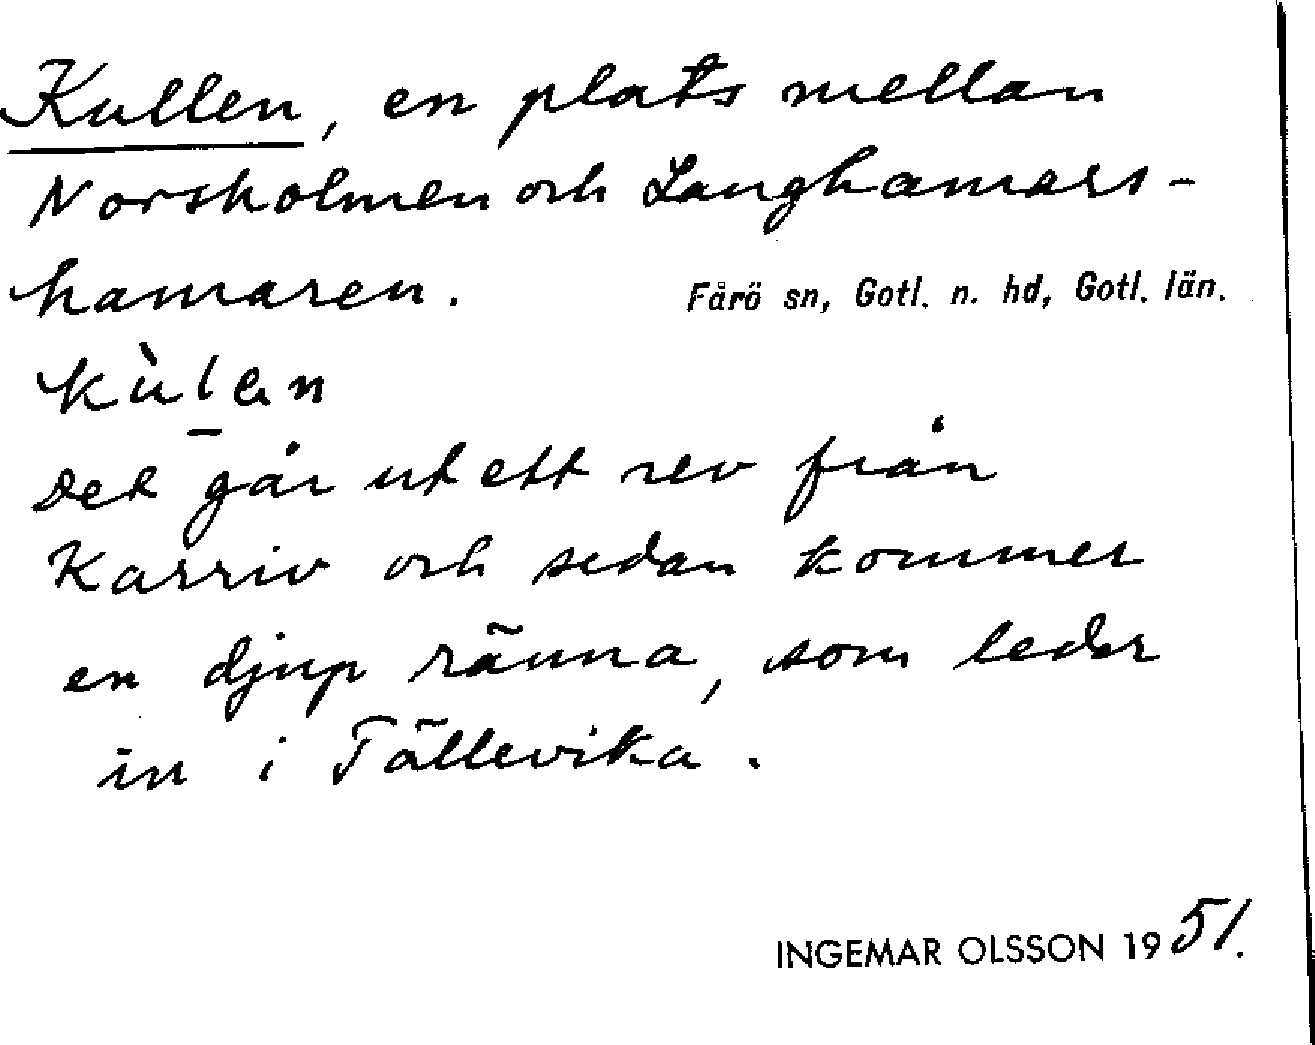 Kullen, en plats mellan
Norsholmen och Langhamars-
hamaren.
Fårö sn, Gotl. n. hd, Gotl. län.
kùlən
Det går ut ett rev från
Karriv och sedan kommer
en djup ränna, som leder
in i Tällevika.
INGEMAR OLSSON 1951.